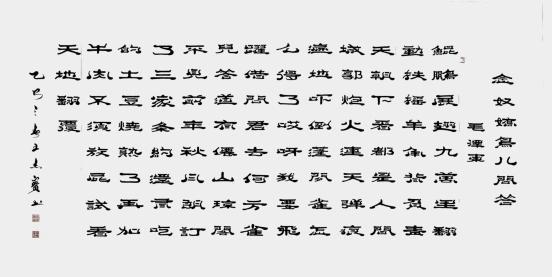 念奴嬌鳥儿問答
毛澤東
鯤鵬展翅九萬里翻
動扶摇羊角背負青
天朝下看都是人間
城郭炮火連天彈痕
遍地吓倒蓬間雀怎
么得了哎呀我要飛
躍借問君去何方雀
兒答道有僊山瓊閣
不見前年秋月朗訂
了三家條約還有吃
的土豆燒熟了再加
牛肉不須放屁試看
天地翻覆
乙巳之春王志